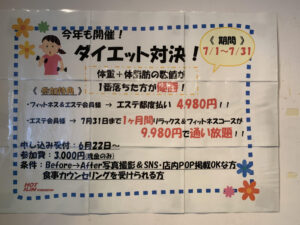 今年も開催！
ダイエット対決！
《 期間 》
7/1～7/31
体重＋体脂肪の数値が
1番落ちた方が優勝！
《 参加特典 》
・フィットネス&エステ会員様 → エステ都度払い 4,980円！！
・エステ会員様 → 7月31日まで1ヶ月間リラックス&フィットネスコースが
9,980円で通い放題！！
申し込み受付：6月22日～
参加費：3,000円(現金のみ)
条件：Before→After写真撮影&SNS・店内POP掲載OKな方
食事カウンセリングを受けられる方
HOT
SLIM